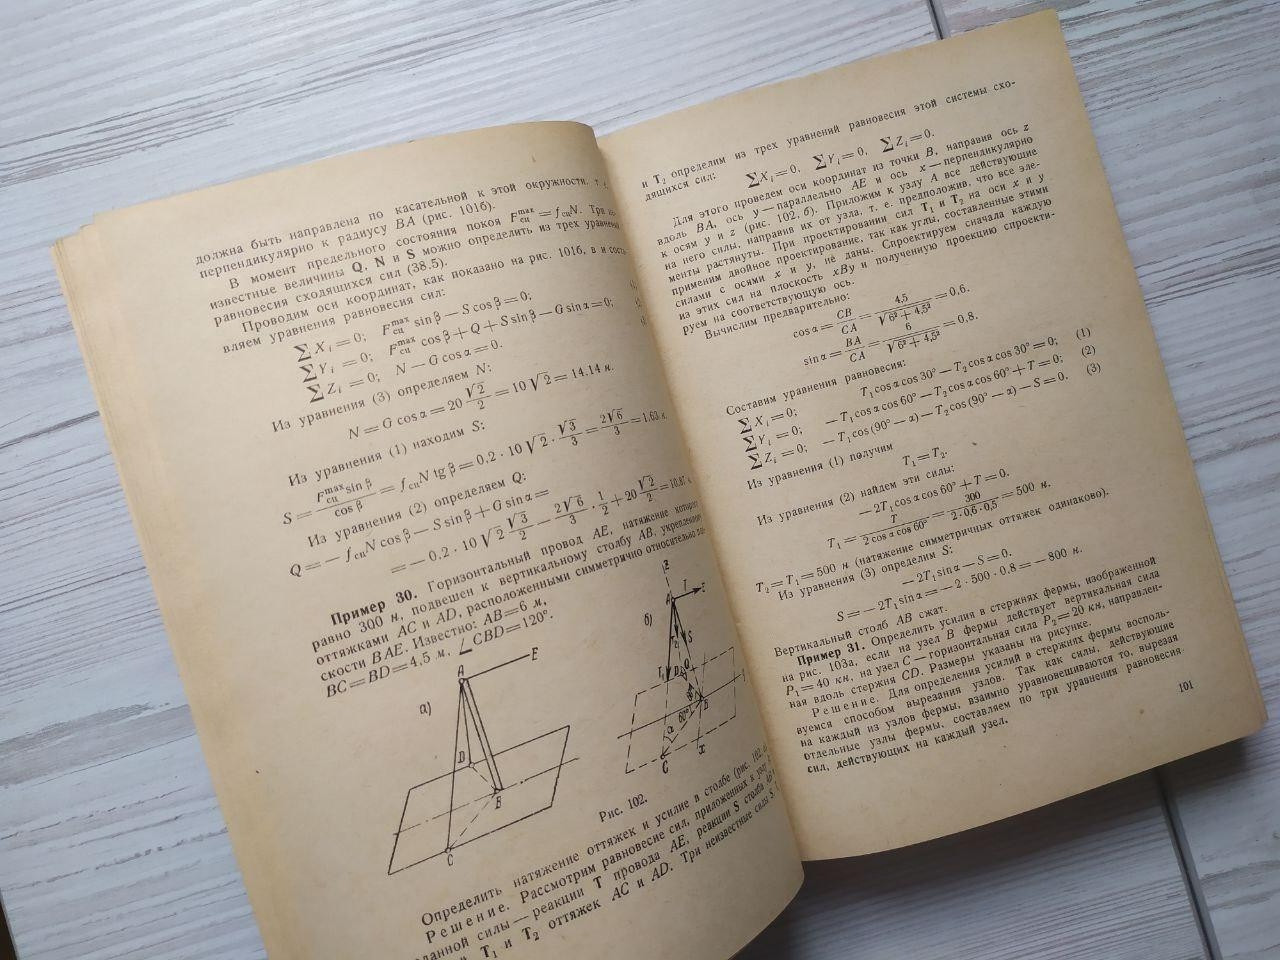 должна быть направлена по касательной к этой окружности, т. е.
перпендикулярно к радиусу BA (рис. 101б).
В момент предельного состояния покоя F_сц^max = f_сц N. Три не-
известные величины Q, N и S можно определить из трех уравнений
равновесия сходящихся сил (38.5).
Проводим оси координат, как показано на рис. 101б, в и соста-
вляем уравнения равновесия сил:
∑X_i = 0; F_сц^max sin β — S cos β = 0;
∑Y_i = 0; F_сц^max cos β + Q + S sin β — G sin α = 0;
∑Z_i = 0; N — G cos α = 0.
Из уравнения (3) определяем N:
N = G cos α = 20 √2/2 = 10 √2 = 14.14 н.
Из уравнения (1) находим S:
S = F_сц^max sin β / cos β = f_сц N tg β = 0,2 · 10 √2 · √3/3 = 2√6/3 = 1.63 н.
Из уравнения (2) определяем Q:
Q = — f_сц N cos β — S sin β + G sin α =
= — 0.2 · 10 √2 √3/2 — 2√6/3 · 1/2 + 20 √2/2 = 10.87 н.
Пример 30. Горизонтальный провод AE, натяжение которого
равно 300 н, подвешен к вертикальному столбу AB, укрепленному
оттяжками AC и AD, расположенными симметрично относительно
скости BAE. Известно: AB = 6 м,
BC = BD = 4,5 м, ∠CBD = 120°.
а)
A
E
D
B
C
б)
z
A
T
E
T₂
S
T₁
D
B
60°
α
C
x
Рис. 102.
Определить натяжение оттяжек и усилие в столбе (рис. 102,
Решение. Рассмотрим равновесие сил, приложенных к узлу
данной силы — реакции T провода AE, реакции S столба
T₁ и T₂ оттяжек AC и AD. Три неизвестные силы S,
и T₂ определим из трех уравнений равновесия этой системы схо-
дящихся сил:
∑X_i = 0, ∑Y_i = 0, ∑Z_i = 0.
Для этого проведем оси координат из точки B, направив ось z
вдоль BA, ось y — параллельно AE и ось x — перпендикулярно
к осям y и z (рис. 102, б). Приложим к узлу A все действующие
на него силы, направив их от узла, т. е. предположив, что все эле-
менты растянуты. При проектировании сил T₁ и T₂ на оси x и y
применим двойное проектирование, так как углы, составленные этими
силами с осями x и y, не даны. Спроектируем сначала каждую
из этих сил на плоскость xBy и полученную проекцию спроекти-
руем на соответствующую ось.
Вычислим предварительно:
cos α = CB/CA = 4,5/√(6² + 4,5²) = 0,6.
sin α = BA/CA = 6/√(6² + 4,5²) = 0,8.
Составим уравнения равновесия:
∑X_i = 0; T₁ cos α cos 30° — T₂ cos α cos 30° = 0; (1)
∑Y_i = 0; — T₁ cos α cos 60° — T₂ cos α cos 60° + T = 0; (2)
∑Z_i = 0; — T₁ cos (90° — α) — T₂ cos (90° — α) — S = 0. (3)
Из уравнения (1) получим
T₁ = T₂.
Из уравнения (2) найдем эти силы:
— 2T₁ cos α cos 60° + T = 0.
T₁ = T/(2 cos α cos 60°) = 300/(2 · 0.6 · 0,5) = 500 н.
T₂ = T₁ = 500 н (натяжение симметричных оттяжек одинаково).
Из уравнения (3) определим S:
— 2T₁ sin α — S = 0.
S = — 2T₁ sin α = — 2 · 500 · 0.8 = — 800 н.
Вертикальный столб AB сжат.
Пример 31. Определить усилия в стержнях фермы, изображенной
на рис. 103а, если на узел B фермы действует вертикальная сила
P₁ = 40 кн, на узел C — горизонтальная сила P₂ = 20 кн, направлен-
ная вдоль стержня CD. Размеры указаны на рисунке.
Решение. Для определения усилий в стержнях фермы восполь-
зуемся способом вырезания узлов. Так как силы, действующие
на каждый из узлов фермы, взаимно уравновешиваются то, вырезая
отдельные узлы фермы, составляем по три уравнения равновесия
сил, действующих на каждый узел.
101